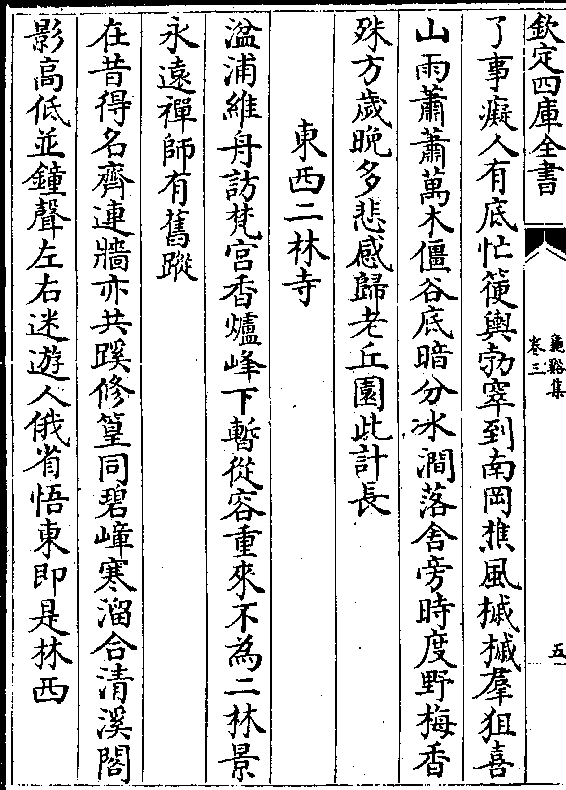 欽定四庫全書
龜谿集
卷三
五
了事癡人有底忙箯輿勃窣到南岡樵風摵摵羣狙喜
山雨蕭蕭萬木僵谷底暗分冰澗落舍旁時度野梅香
殊方歲晚多悲感歸老丘園此計長
東西二林寺
湓浦維舟訪梵宮香爐峰下暫從容重來不為二林景
永遠禪師有舊蹤
在昔得名齊連牆亦共蹊修篁同碧嶂寒溜合清溪閣
影高低並鐘聲左右迷遊人俄省悟東即是林西